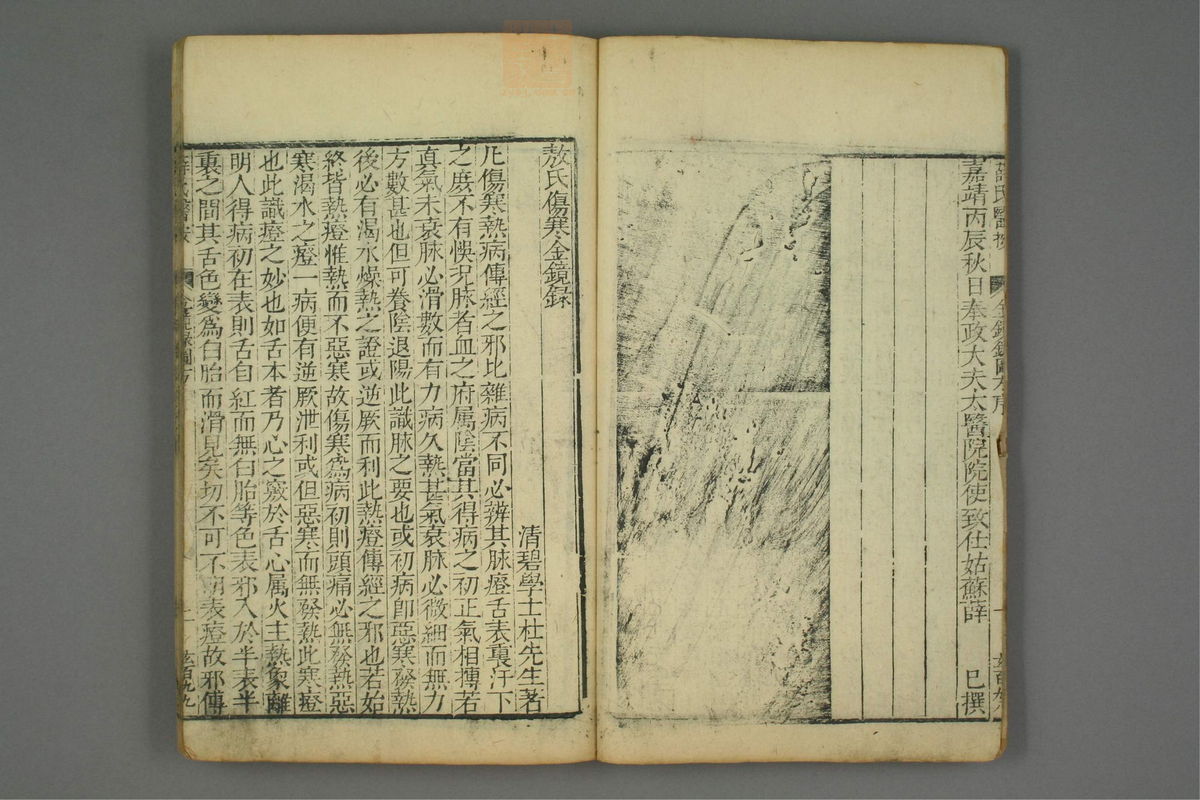 嘉靖丙辰秋日奉政大夫太醫院院使致仕姑蘇薛　己撰
敖氏傷寒金鏡録
清碧學士杜先生著
凢傷寒熱病傳經之邪比雜病不同必辨其脉證舌表裏汗下
之庶不有悞况脉者血之府属陰當其得病之初正氣相摶若
真氣未衰脉必滑數而有力病久熱甚氣衰脉必微細而無力
方數甚也但可養陰退陽此識脉之要也或初病即惡寒發熱
後必有渴水燥熱之證或逆厥而利此熱證傳經之邪也若始
終皆熱證惟熱而不惡寒故傷寒為病初則頭痛必無發熱惡
寒渴水之證一病便有逆厥泄利或但惡寒而無發熱此寒證
也此識證之妙也如舌本者乃心之竅於舌心属火主熱象離
明人得病初在表則舌自紅而無白胎等色表邪入於半表半
裏之間其舌色變爲白胎而滑見矣切不可不明表證故邪傳